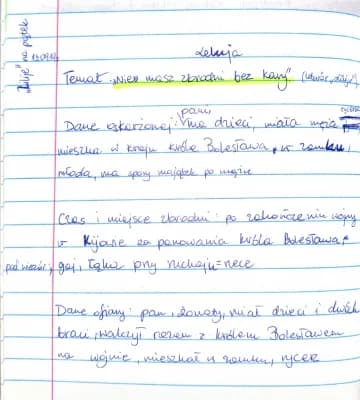 "Lilije" na piątek
Lekcja
Temat: „Nie masz zbrodni bez kary". (utwór,
pani,
Dane oskarżonej: ma dzieci, miała męża rycerza
mieszka w kraju króla Bolesława, w zamku,
młoda, ma spory majątek po mężu
Czas i miejsce zbrodni: po zakończeniu wojny
w Kijowie za panowania króla Bolesława,
pod wieczór, gaj, łąka przy ruczaju=rzece
Dane ofiary: pan, żonaty, miał dzieci i dwóch
braci, walczył razem z królem Bolesławem
na wojnie, mieszkał w zamku, rycerz